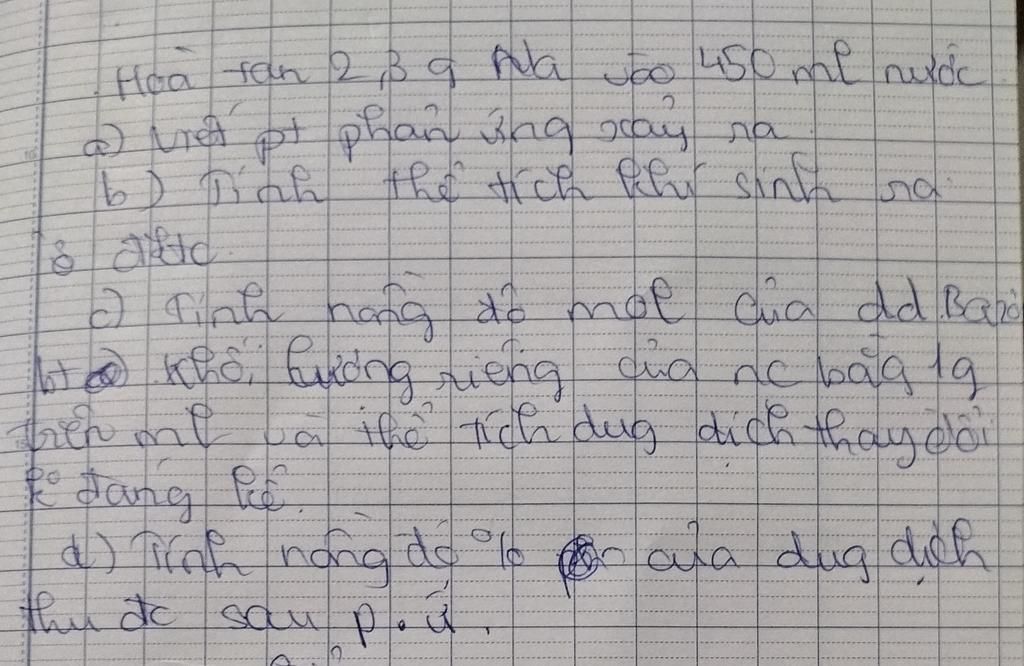 Hoà tan 2,3 g Na vào 450 ml nước
a) viết pt phản ứng xảy ra
b) Tính thể tích khí sinh ra
ở đktc.
c) Tính nồng độ mol của dd Bazơ
bt khối lượng riêng của nc bằg 1g
trên ml và thể tích dug dịch thay đổi
ko đáng kể.
d) Tính nồng độ % của dug dịch
thu đc sau p.ứ.